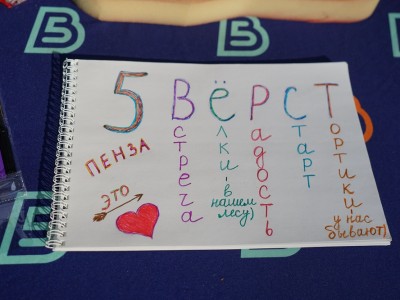 5 ВЁРСТ
ПЕНЗА
ЭТО
стреча
лки (в
нашем
лесу)
адость
тарт
ортики
(у нас
бывают)